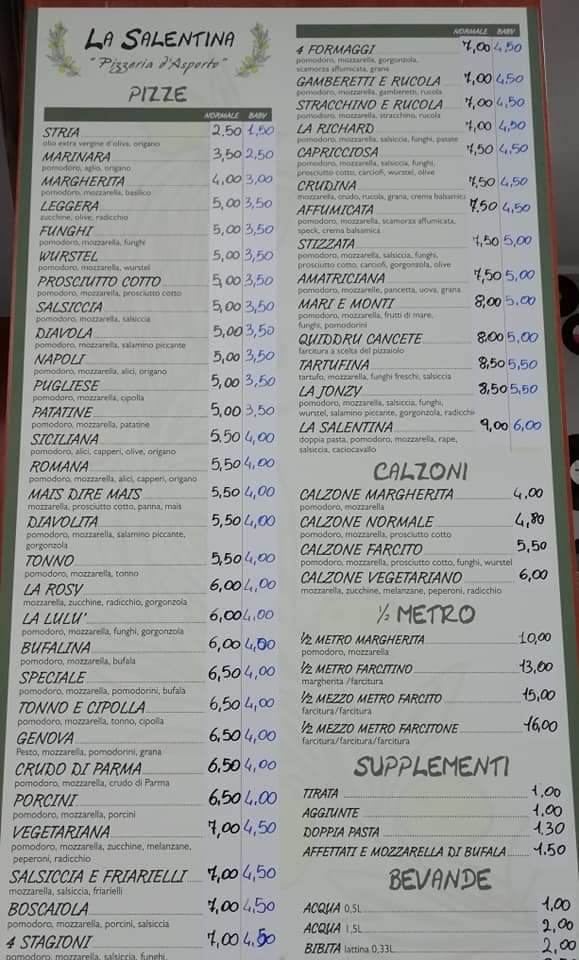 LA SALENTINA
"Pizzeria d'Asporto"
PIZZE
NORMALE BABY
STRIA 2,50 1,50
olio extra vergine d'oliva, origano
MARINARA 3,50 2,50
pomodoro, aglio, origano
MARGHERITA 4,00 3,00
pomodoro, mozzarella, basilico
LEGGERA 5,00 3,50
zucchine, olive, radicchio
FUNGHI 5,00 3,50
pomodoro, mozzarella, funghi
WURSTEL 5,00 3,50
pomodoro, mozzarella, wurstel
PROSCIUTTO COTTO 5,00 3,50
pomodoro, mozzarella, prosciutto cotto
SALSICCIA 5,00 3,50
pomodoro, mozzarella, salsiccia
DIAVOLA 5,00 3,50
pomodoro, mozzarella, salamino piccante
NAPOLI 5,00 3,50
pomodoro, mozzarella, alici, origano
PUGLIESE 5,00 3,50
pomodoro, mozzarella, cipolla
PATATINE 5,00 3,50
pomodoro, mozzarella, patatine
SICILIANA 5,50 4,00
pomodoro, alici, capperi, olive, origano
ROMANA 5,50 4,00
pomodoro, mozzarella, alici, capperi, origano
MAIS DIRE MAIS 5,50 4,00
mozzarella, prosciutto cotto, panna, mais
DIAVOLITA 5,50 4,00
pomodoro, mozzarella, salamino piccante,
gorgonzola
TONNO 5,50 4,00
pomodoro, mozzarella, tonno
LA ROSY 6,00 4,00
mozzarella, zucchine, radicchio, gorgonzola
LA LULU' 6,00 4,00
pomodoro, mozzarella, funghi, gorgonzola
BUFALINA 6,00 4,00
pomodoro, mozzarella, bufala
SPECIALE 6,50 4,00
pomodoro, mozzarella, pomodorini, bufala
TONNO E CIPOLLA 6,50 4,00
pomodoro, mozzarella, tonno, cipolla
GENOVA 6,50 4,00
Pesto, mozzarella, pomodorini, grana
CRUDO DI PARMA 6,50 4,00
pomodoro, mozzarella, crudo di Parma
PORCINI 6,50 4,00
pomodoro, mozzarella, porcini
VEGETARIANA 7,00 4,50
pomodoro, mozzarella, zucchine, melanzane,
peperoni, radicchio
SALSICCIA E FRIARIELLI 7,00 4,50
mozzarella, salsiccia, friarielli
BOSCAIOLA 7,00 4,50
pomodoro, mozzarella, porcini, salsiccia
4 STAGIONI 7,00 4,50
pomodoro, mozzarella, salsiccia, funghi,
NORMALE BABY
4 FORMAGGI 7,00 4,50
pomodoro, mozzarella, gorgonzola,
scamorza affumicata, grana
GAMBERETTI E RUCOLA 7,00 4,50
pomodoro, mozzarella, gamberetti, rucola
STRACCHINO E RUCOLA 7,00 4,50
pomodoro, mozzarella, stracchino, rucola
LA RICHARD 7,00 4,50
pomodoro, mozzarella, salsiccia, funghi, patate
CAPRICCIOSA 7,50 4,50
pomodoro, mozzarella, salsiccia, funghi,
prosciutto cotto, carciofi, wurstel, olive
CRUDINA 7,50 4,50
mozzarella, crudo, rucola, grana, crema balsamica
AFFUMICATA 7,50 4,50
pomodoro, mozzarella, scamorza affumicata,
speck, crema balsamica
STIZZATA 7,50 5,00
pomodoro, mozzarella, salsiccia, funghi,
prosciutto cotto, carciofi, gorgonzola, olive
AMATRICIANA 7,50 5,00
pomodoro, mozzarelle, pancetta, uova, grana
MARI E MONTI 8,00 5,00
pomodoro, mozzarella, frutti di mare,
funghi, pomodorini
QUIDDRU CANCETE 8,00 5,00
farcitura a scelta del pizzaiolo
TARTUFINA 8,50 5,50
tartufo, mozzarella, funghi freschi, salsiccia
LA JONZY 8,50 5,50
pomodoro, mozzarella, salsiccia, funghi,
wurstel, salamino piccante, gorgonzola, radicchio
LA SALENTINA 9,00 6,00
doppia pasta, pomodoro, mozzarella, rape,
salsiccia, caciocavallo
CALZONI
CALZONE MARGHERITA 4,00
pomodoro, mozzarella
CALZONE NORMALE 4,80
pomodoro, mozzarella, prosciutto cotto
CALZONE FARCITO 5,50
pomodoro, mozzarella, prosciutto cotto, funghi, wurstel
CALZONE VEGETARIANO 6,00
mozzarella, zucchine, melanzane, peperoni, radicchio
½ METRO
½ METRO MARGHERITA 10,00
pomodoro, mozzarella
½ METRO FARCITINO 13,00
margherita /farcitura
½ MEZZO METRO FARCITO 15,00
farcitura/farcitura
½ MEZZO METRO FARCITONE 16,00
farcitura/farcitura/farcitura
SUPPLEMENTI
TIRATA 1,00
AGGIUNTE 1,00
DOPPIA PASTA 1.30
AFFETTATI E MOZZARELLA DI BUFALA 1.50
BEVANDE
ACQUA 0,5L 1,00
ACQUA 1,5L 2,00
BIBITA lattina 0,33L 2,00